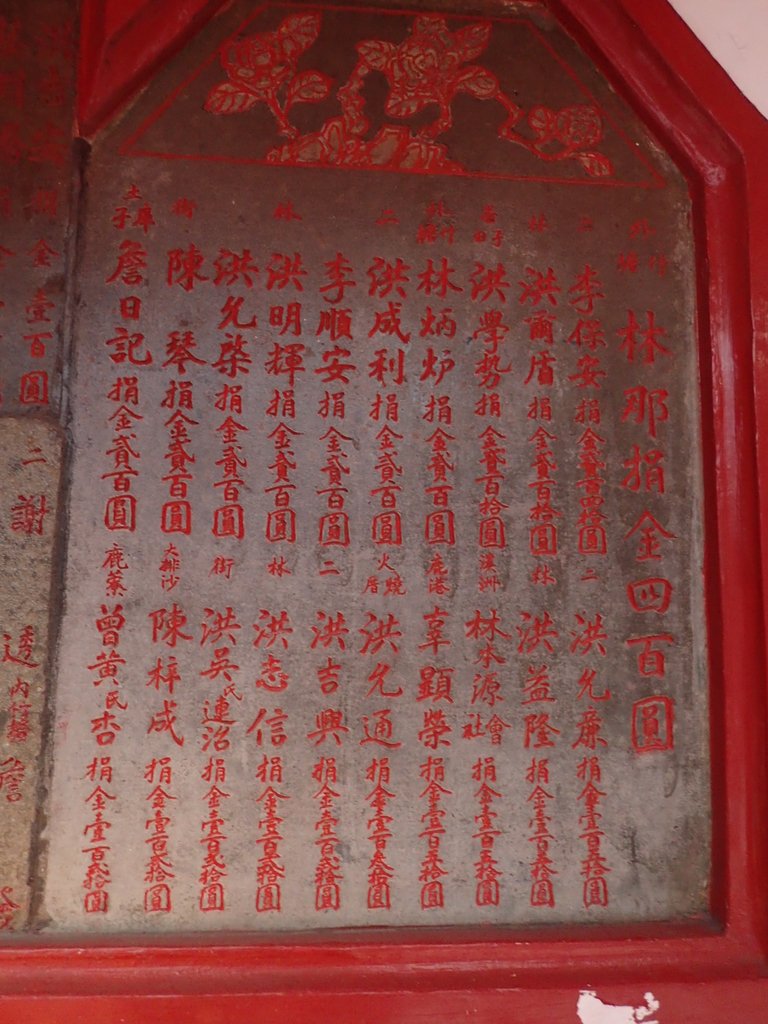 外竹塘 林那捐金四百圓
二 李保安捐金貳百四拾圓 二 洪允廉捐金壹百五拾圓
林 洪爾盾捐金貳百拾圓 林 洪益隆捐金壹百五拾圓
苔子 洪學勢捐金貳百拾圓 溪洲 林水源會社捐金壹百五拾圓
竹塘 林炳炉捐金貳百圓 鹿港 辜顯榮捐金壹百五拾圓
二 洪成利捐金貳百圓 火燒厝 洪允通捐金壹百叁拾圓
李順安捐金貳百圓 二 洪吉興捐金壹百貳拾圓
林 洪明輝捐金貳百圓 林 洪志信捐金壹百貳拾圓
洪允棨捐金貳百圓 街 洪吳氏連治捐金壹百貳拾圓
街 陳琴捐金貳百圓 大排沙 陳梓成捐金壹百貳拾圓
土庫子 詹日記捐金貳百圓 鹿藔 曾黃氏杏捐金壹百貳拾圓
金壹百圓
二 謝
透
詹